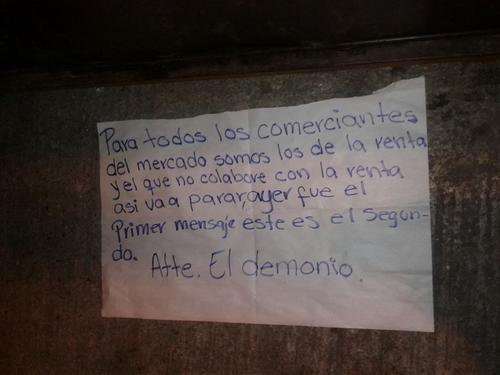 Para todos los comerciantes
del mercado somos los de la renta
y el que no colabore con la renta
asi va a parar, ayer fue el
Primer mensaje este es el segun-
do.
Atte. El demonio.